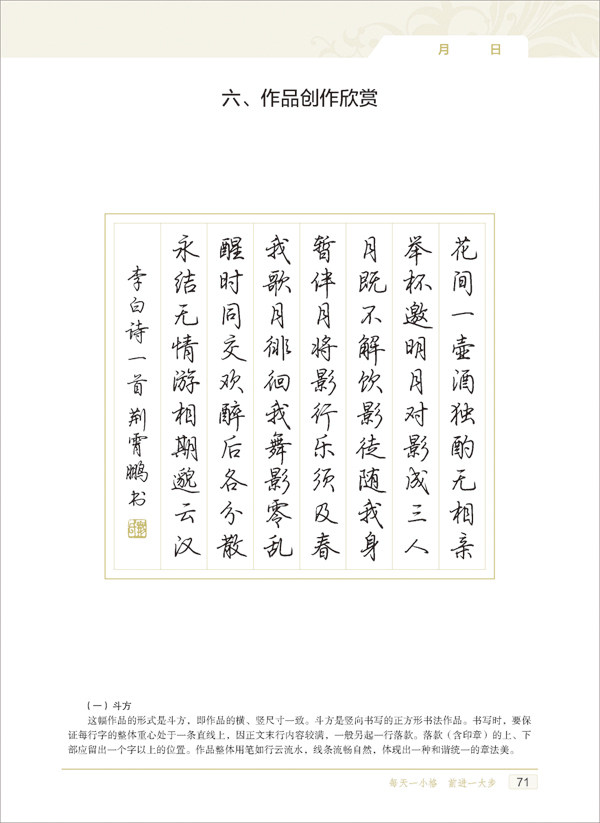 月 日
六、作品创作欣赏
花间一壶酒独酌无相亲
举杯邀明月对影成三人
月既不解饮影徒随我身
暂伴月将影行乐须及春
我歌月徘徊我舞影零乱
醒时同交欢醉后各分散
永结无情游相期邈云汉
李白诗一首荆霄鹏书
（一）斗方
这幅作品的形式是斗方，即作品的横、竖尺寸一致。斗方是竖向书写的正方形书法作品。书写时，要保
证每行字的整体重心处于一条直线上，因正文末行内容较满，一般另起一行落款。落款（含印章）的上、下
部应留出一个字以上的位置。作品整体用笔如行云流水，线条流畅自然，体现出一种和谐统一的章法美。
每天一小格 前进一大步 71